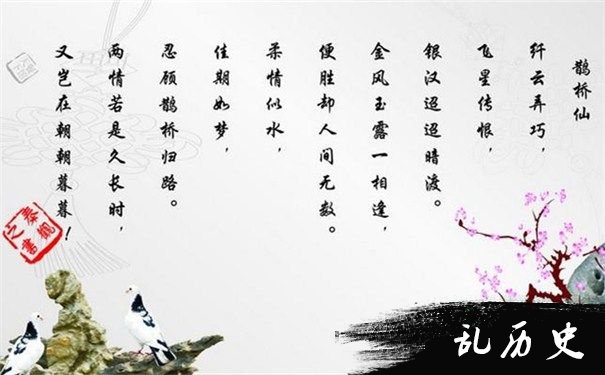 鹊桥仙
纤云弄巧，
飞星传恨，
银汉迢迢暗渡。
金风玉露一相逢，
便胜却人间无数。
柔情似水，
佳期如梦，
忍顾鹊桥归路。
两情若是久长时，
又岂在朝朝暮暮！
秦观
之书
乱历史